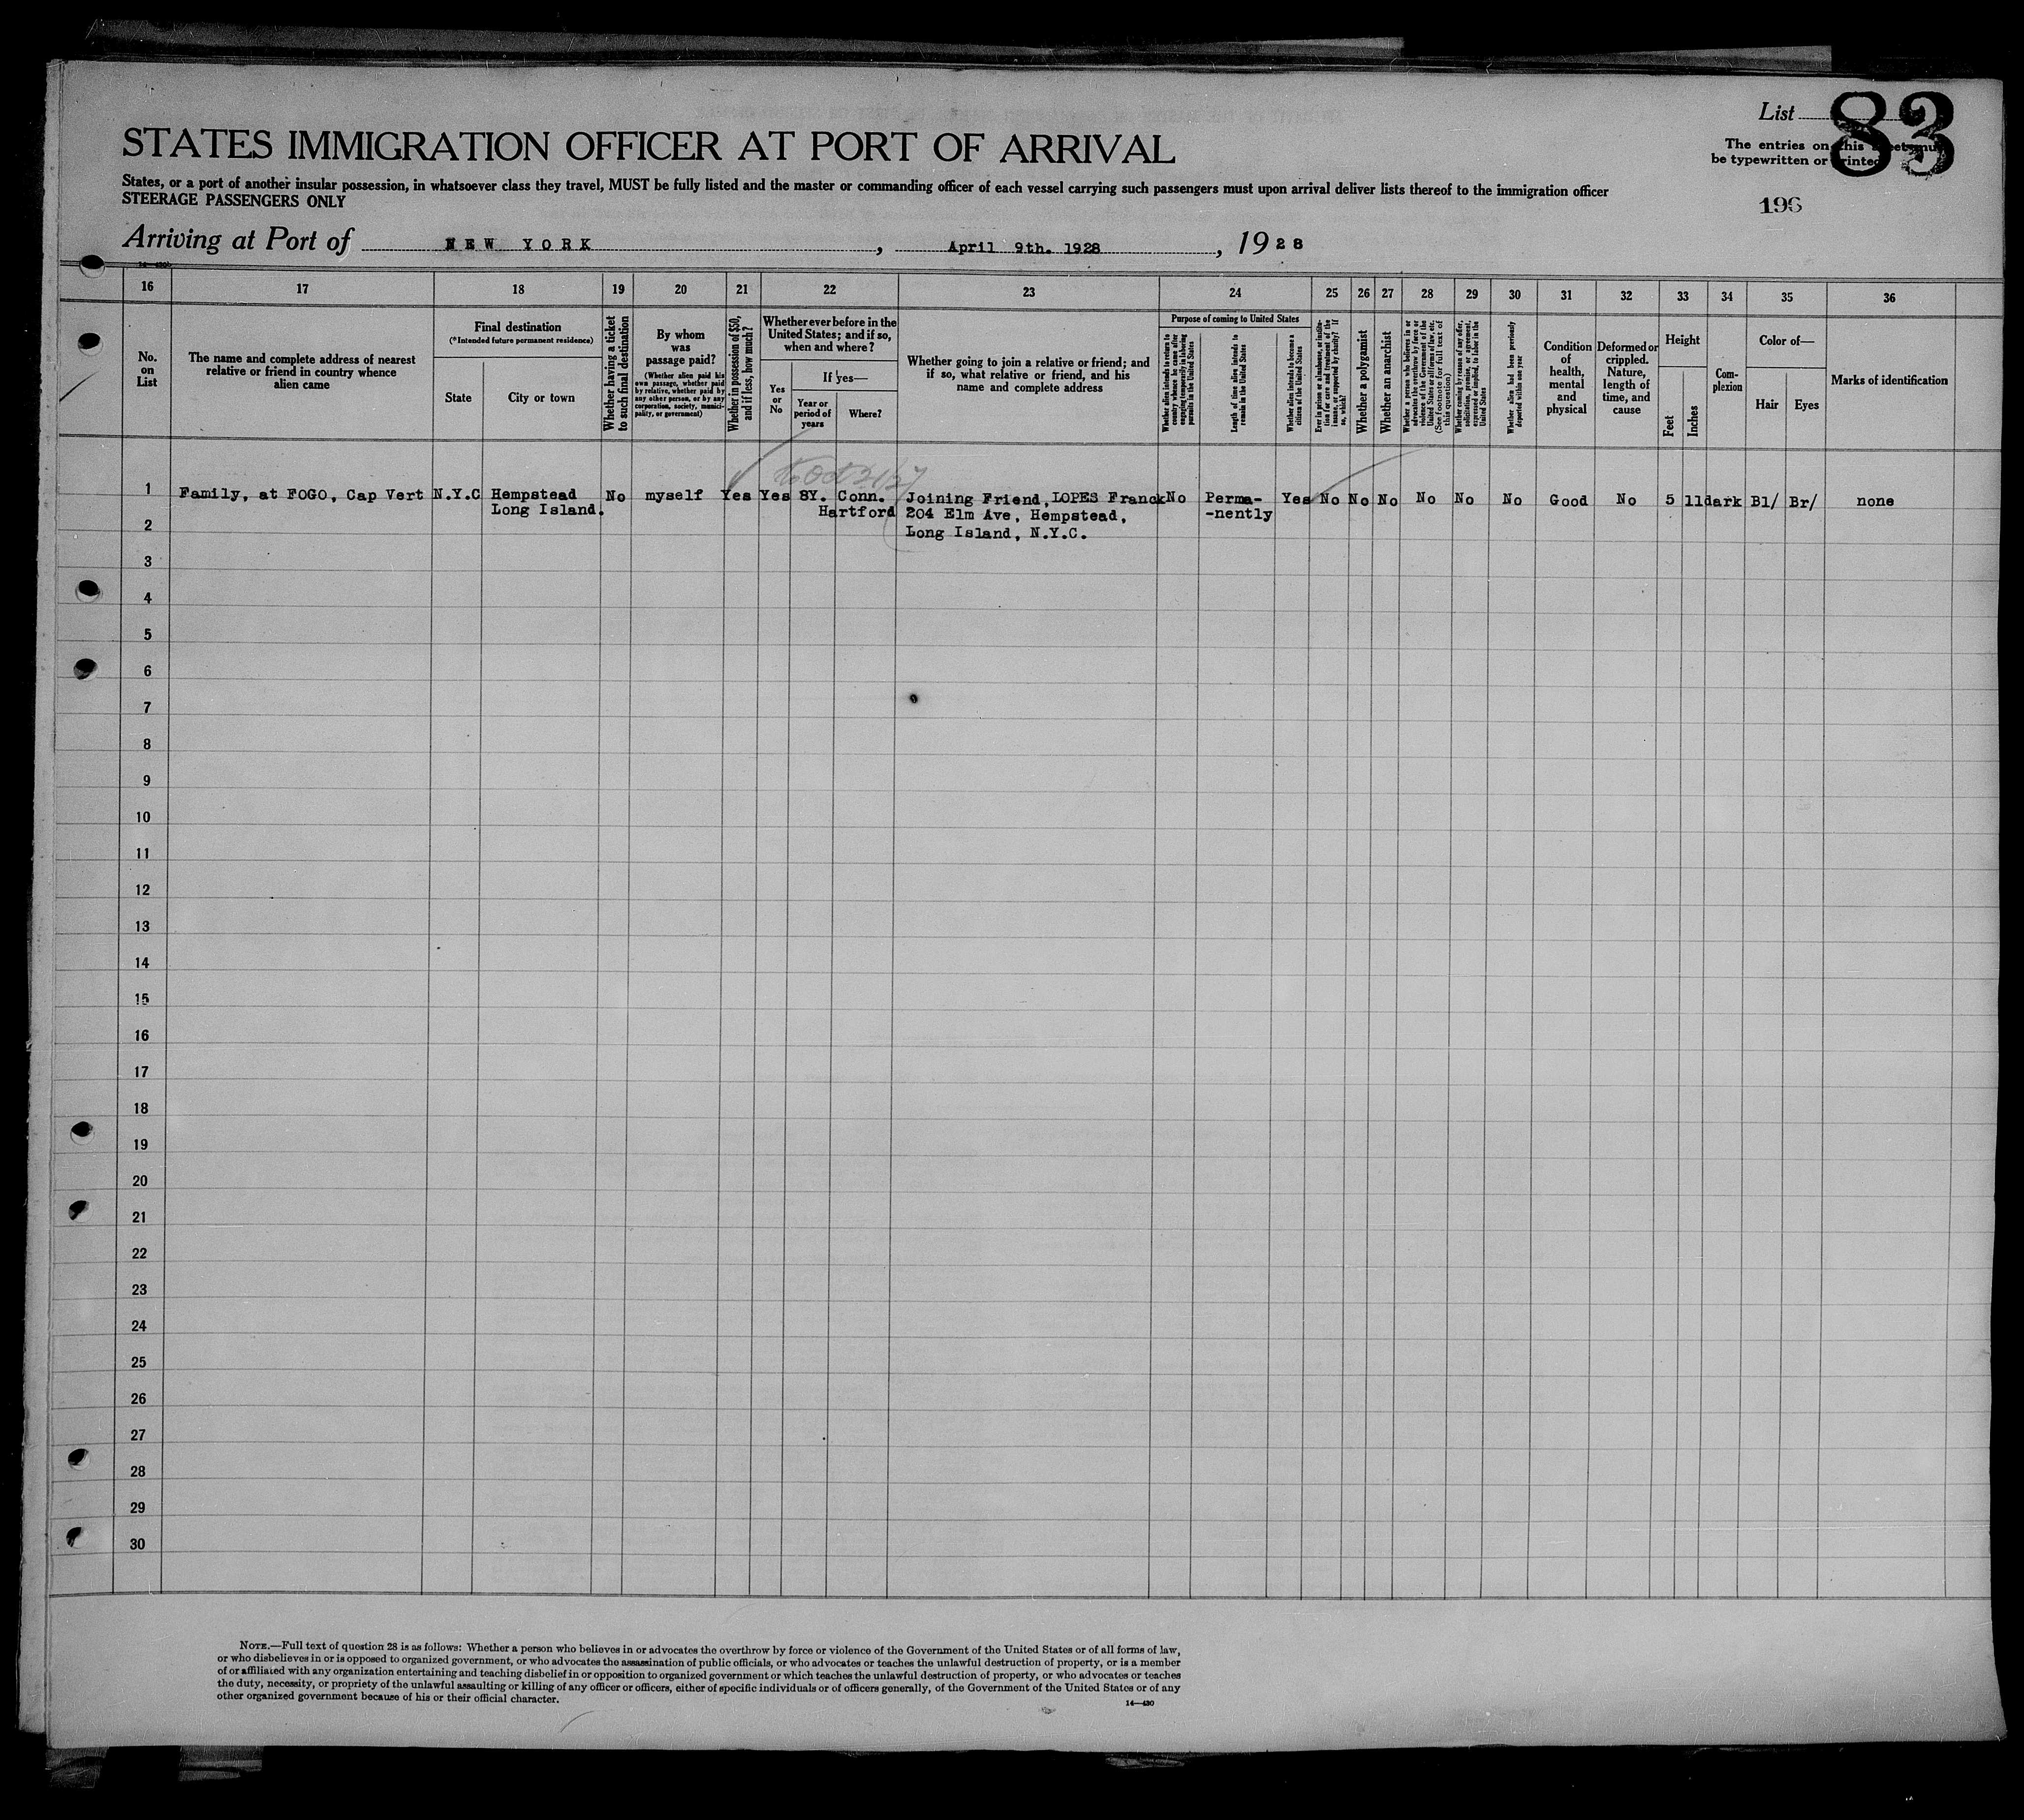 List 83
STATES IMMIGRATION OFFICER AT PORT OF ARRIVAL
The entries on this sheet must
be typewritten or printed
States, or a port of another insular possession, in whatsoever class they travel, MUST be fully listed and the master or commanding officer of each vessel carrying such passengers must upon arrival deliver lists thereof to the immigration officer
STEERAGE PASSENGERS ONLY
196
Arriving at Port of NEW YORK, April 9th. 1928, 1928
16 17 18 19 20 21 22 23 24 25 26 27 28 29 30 31 32 33 34 35 36
No.
on
List
The name and complete address of nearest
relative or friend in country whence
alien came
Final destination
(*Intended future permanent residence)
State
City or town
Whether having a ticket
to such final destination
By whom
was
passage paid?
(Whether alien paid his
own passage, whether paid
by relative, whether paid by
any other person, or by any
corporation, society, munici-
pality, or government)
Whether in possession of $50,
and if less, how much?
Whether ever before in the
United States; and if so,
when and where?
Yes
or
No
If yes—
Year or
period of
years
Where?
Whether going to join a relative or friend; and
if so, what relative or friend, and his
name and complete address
Purpose of coming to United States
Whether alien intends to return to
country whence he came after
engaging temporarily in laboring
pursuits in the United States
Length of time alien intends to
remain in the United States
Whether alien intends to become a
citizen of the United States
Ever in prison or almshouse, or institu-
tion for care and treatment of the
insane, or supported by charity? If
so, which?
Whether a polygamist
Whether an anarchist
Whether a person who believes in or
advocates the overthrow by force or
violence of the Government of the
United States or all forms of law, etc.
(See footnote for full text of
this question)
Whether coming by reason of any offer,
solicitation, promise, or agreement,
expressed or implied, to labor in the
United States
Whether alien had been previously
deported within one year
Condition
of
health,
mental
and
physical
Deformed or
crippled.
Nature,
length of
time, and
cause
Height
Feet
Inches
Com-
plexion
Color of—
Hair
Eyes
Marks of identification
1 Family, at FOGO, Cap Vert N.Y.C Hempstead No myself Yes Yes 8Y. Conn. Joining Friend, LOPES Franck No Perma- Yes No No No No No No Good No 5 11 dark Bl/ Br/ none
Long Island. Hartford 204 Elm Ave, Hempstead, -nently
2 Long Island, N.Y.C.
3
4
5
6
7
8
9
10
11
12
13
14
15
16
17
18
19
20
21
22
23
24
25
26
27
28
29
30
NOTE.—Full text of question 28 is as follows: Whether a person who believes in or advocates the overthrow by force or violence of the Government of the United States or of all forms of law,
or who disbelieves in or is opposed to organized government, or who advocates the assassination of public officials, or who advocates or teaches the unlawful destruction of property, or is a member
of or affiliated with any organization entertaining and teaching disbelief in or opposition to organized government or which teaches the unlawful destruction of property, or who advocates or teaches
the duty, necessity, or propriety of the unlawful assaulting or killing of any officer or officers, either of specific individuals or of officers generally, of the Government of the United States or of any
other organized government because of his or their official character.
14—430